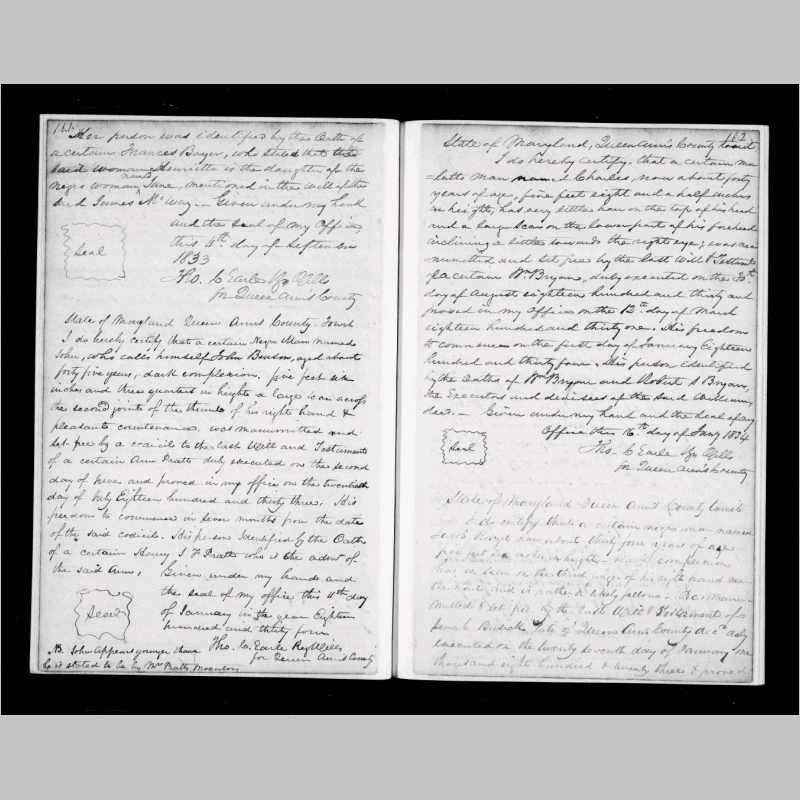 161.
Her person was identified by the Oath of
a certain Frances Boyer, who stated that the
said woman Henrietta is the daughter of the
negro woman named Jane, mentioned in the will of the
said James McWay — Given under my hand
and the Seal of my Office
this 4th day of September
1833
Seal
Tho. C Earle Rgr Wills
for Queen Ann's County
State of Maryland Queen Ann's County Towit
I do hereby certify that a certain Negro Man named
John, who calls himself John Benson, aged about
forty five years, dark complexion, five feet six
inches and three quarters in height a large scar across
the second joint of the thumb of his right hand &
pleasant countenance was manumitted and
set free by a codicil to the Last Will and Testament
of a certain Ann Pratt duly executed on the second
day of June and proved in my office on the twentieth
day of July Eighteen hundred and thirty three; His
freedom to commence in Seven months from the date
of the said codicil. His person Identified by the Oath
of a certain Henry J F Pratt who is the admr of
the said Ann. Given under my hand and
the seal of my office this 4th day
of January in the year Eighteen
hundred and thirty four
Seal
Tho. C. Earle Reg Wills
for Queen Ann's County
NB. John appears younger than
he is stated to be by Mr Pratts
162
State of Maryland, Queen Ann's County towit
I do hereby certify, that a certain mu=
=latto man named Charles, now about forty
years of age, five feet eight and a half inches
in height, has very little hair on the top of his head
and a large scar on the lower part of his forehead
inclining a little towards the right eye; was ma
numitted and set free by the Last Will & Testament
of a certain Wm Bryan, duly executed on the 30th
day of August eighteen hundred and thirty and
proved in my Office on the 12th day of March
eighteen hundred and thirty one. His freedom
to commence on the first day of January Eighteen
hundred and thirty four. His person identified
by the Oaths of Wm Bryan and Robert S Bryan,
the Executors and devisees of the said William,
decd. — Given under my hand and the Seal of my
Office this 16th day of Jany 1834
Seal
Tho. C Earle Rgr Wills
for Queen Ann's County
State of Maryland Queen Ann's County towit
I do certify that a certain negro man named
now about thirty four years of age
five feet inches in height complexion
has a scar on the third finger of his right hand near
the and is rather a likely fellow. Was manu-
mitted & set free by the Last Will & Testament of a
Late of Queen Anns County decd duly
executed on the twenty seventh day of January one
thousand eight hundred & twenty three & proved